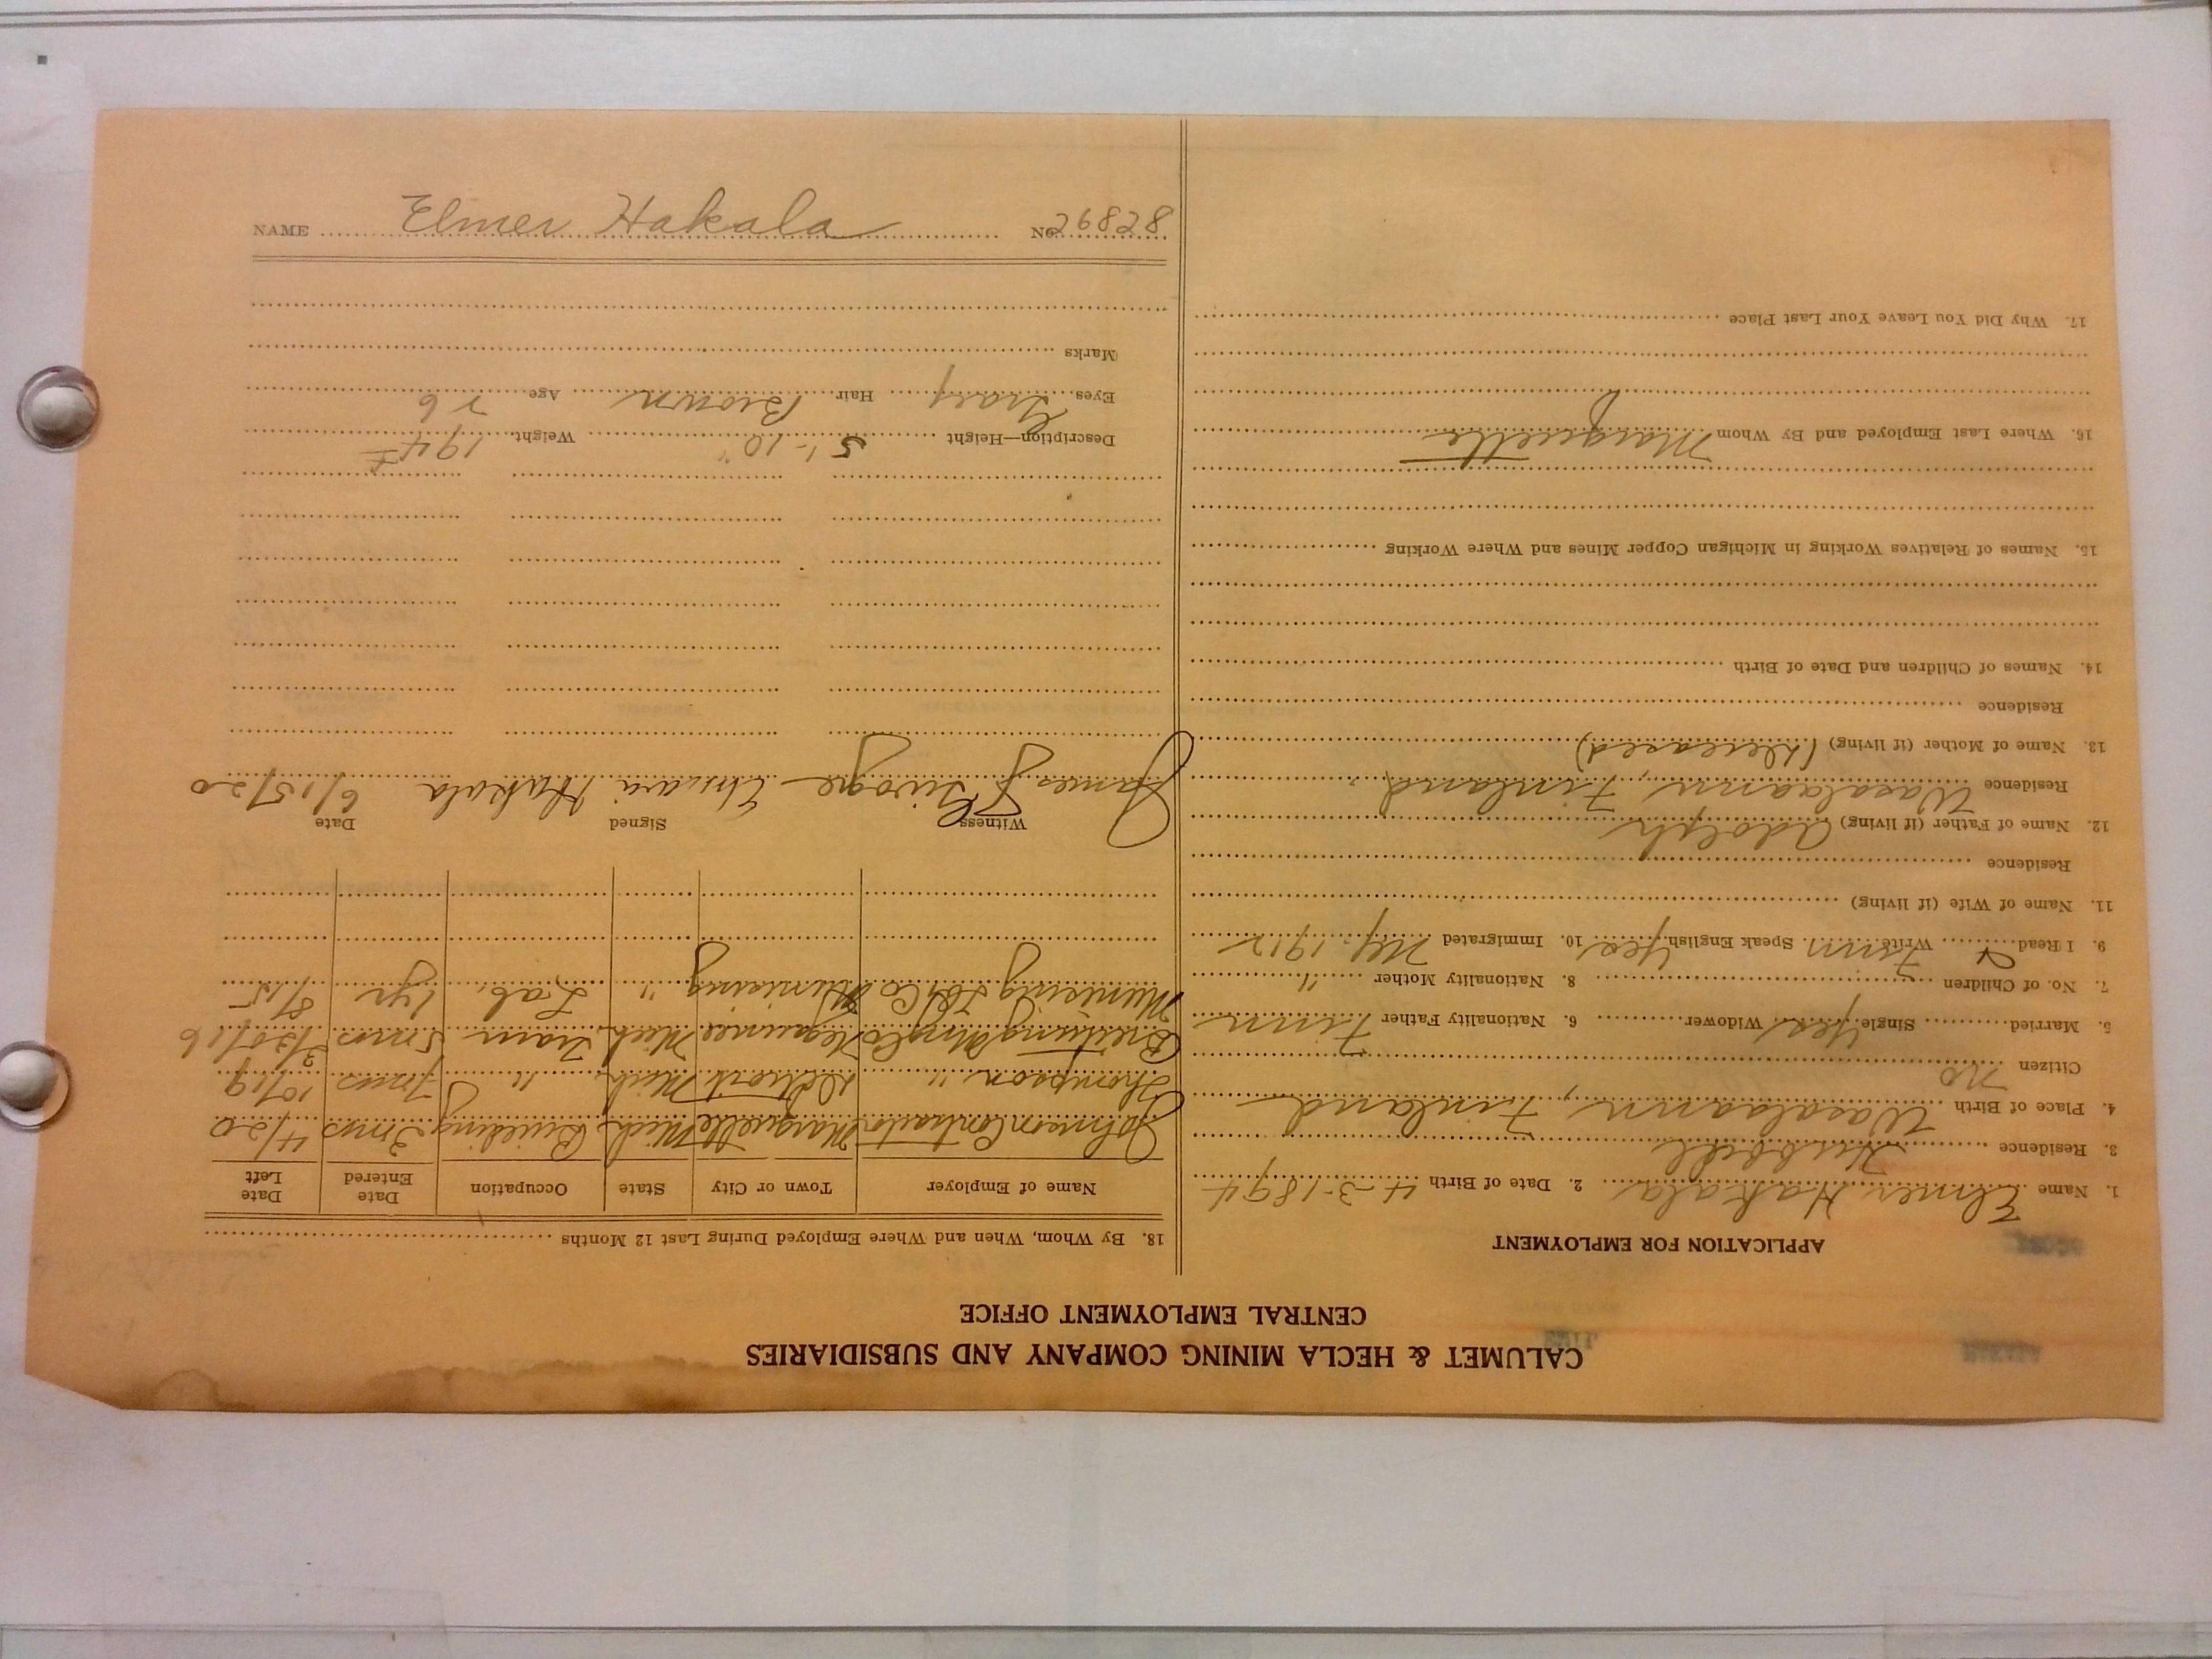 CALUMET & HECLA MINING COMPANY AND SUBSIDIARIES
CENTRAL EMPLOYMENT OFFICE
APPLICATION FOR EMPLOYMENT
1. Name Elmer Hakala 2. Date of Birth 4-3-1894
3. Residence Hubbell
4. Place of Birth Wasalaann, Finland
Citizen No
5. Married Single Yes Widower 6. Nationality Father Finn
7. No. of Children 8. Nationality Mother "
9. I Read Write Finn Speak English Yes 10. Immigrated 1912
11. Name of Wife (if living)
Residence
12. Name of Father (if living) Adolph
Residence Wasalaann, Finland
13. Name of Mother (if living) (Deceased)
Residence
14. Names of Children and Date of Birth
15. Names of Relatives Working in Michigan Copper Mines and Where Working
16. Where Last Employed and By Whom Marquette
17. Why Did You Leave Your Last Place
18. By Whom, When and Where Employed During Last 12 Months
Name of Employer Town or City State Occupation Date Entered Date Left
Johnson Contractor Marquette Mich Building 3 mos 4/20
Thompson " Detroit Mich " 7 mos 10/19
Breitung Mng Co Negaunee Mich Tram 5 mos 3/20/16
Munising Co Munising " Lab. 1 yr 8/15
Witness Signed Date
James Hakala 6/15/20
Description—Height 5'-10" Weight 194
Eyes Gray Hair Brown Age 26
Marks
NAME Elmer Hakala No. 26828